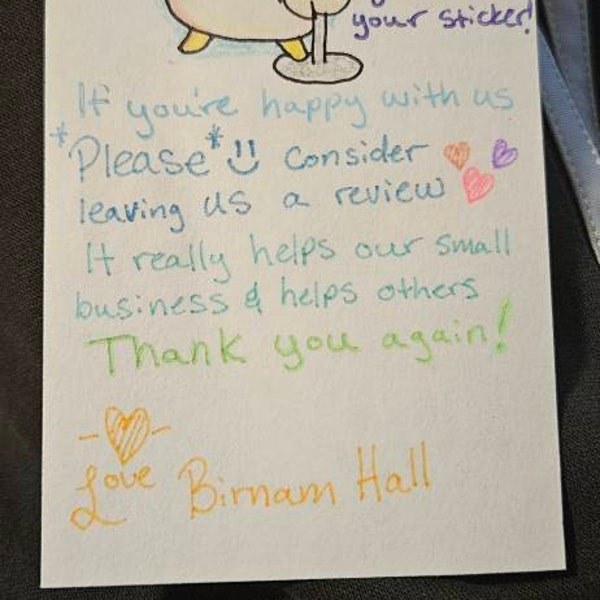 your sticker!
If you're happy with us
*Please* :) consider
leaving us a review
It really helps our small
business & helps others
Thank you again!
Love Birnam Hall